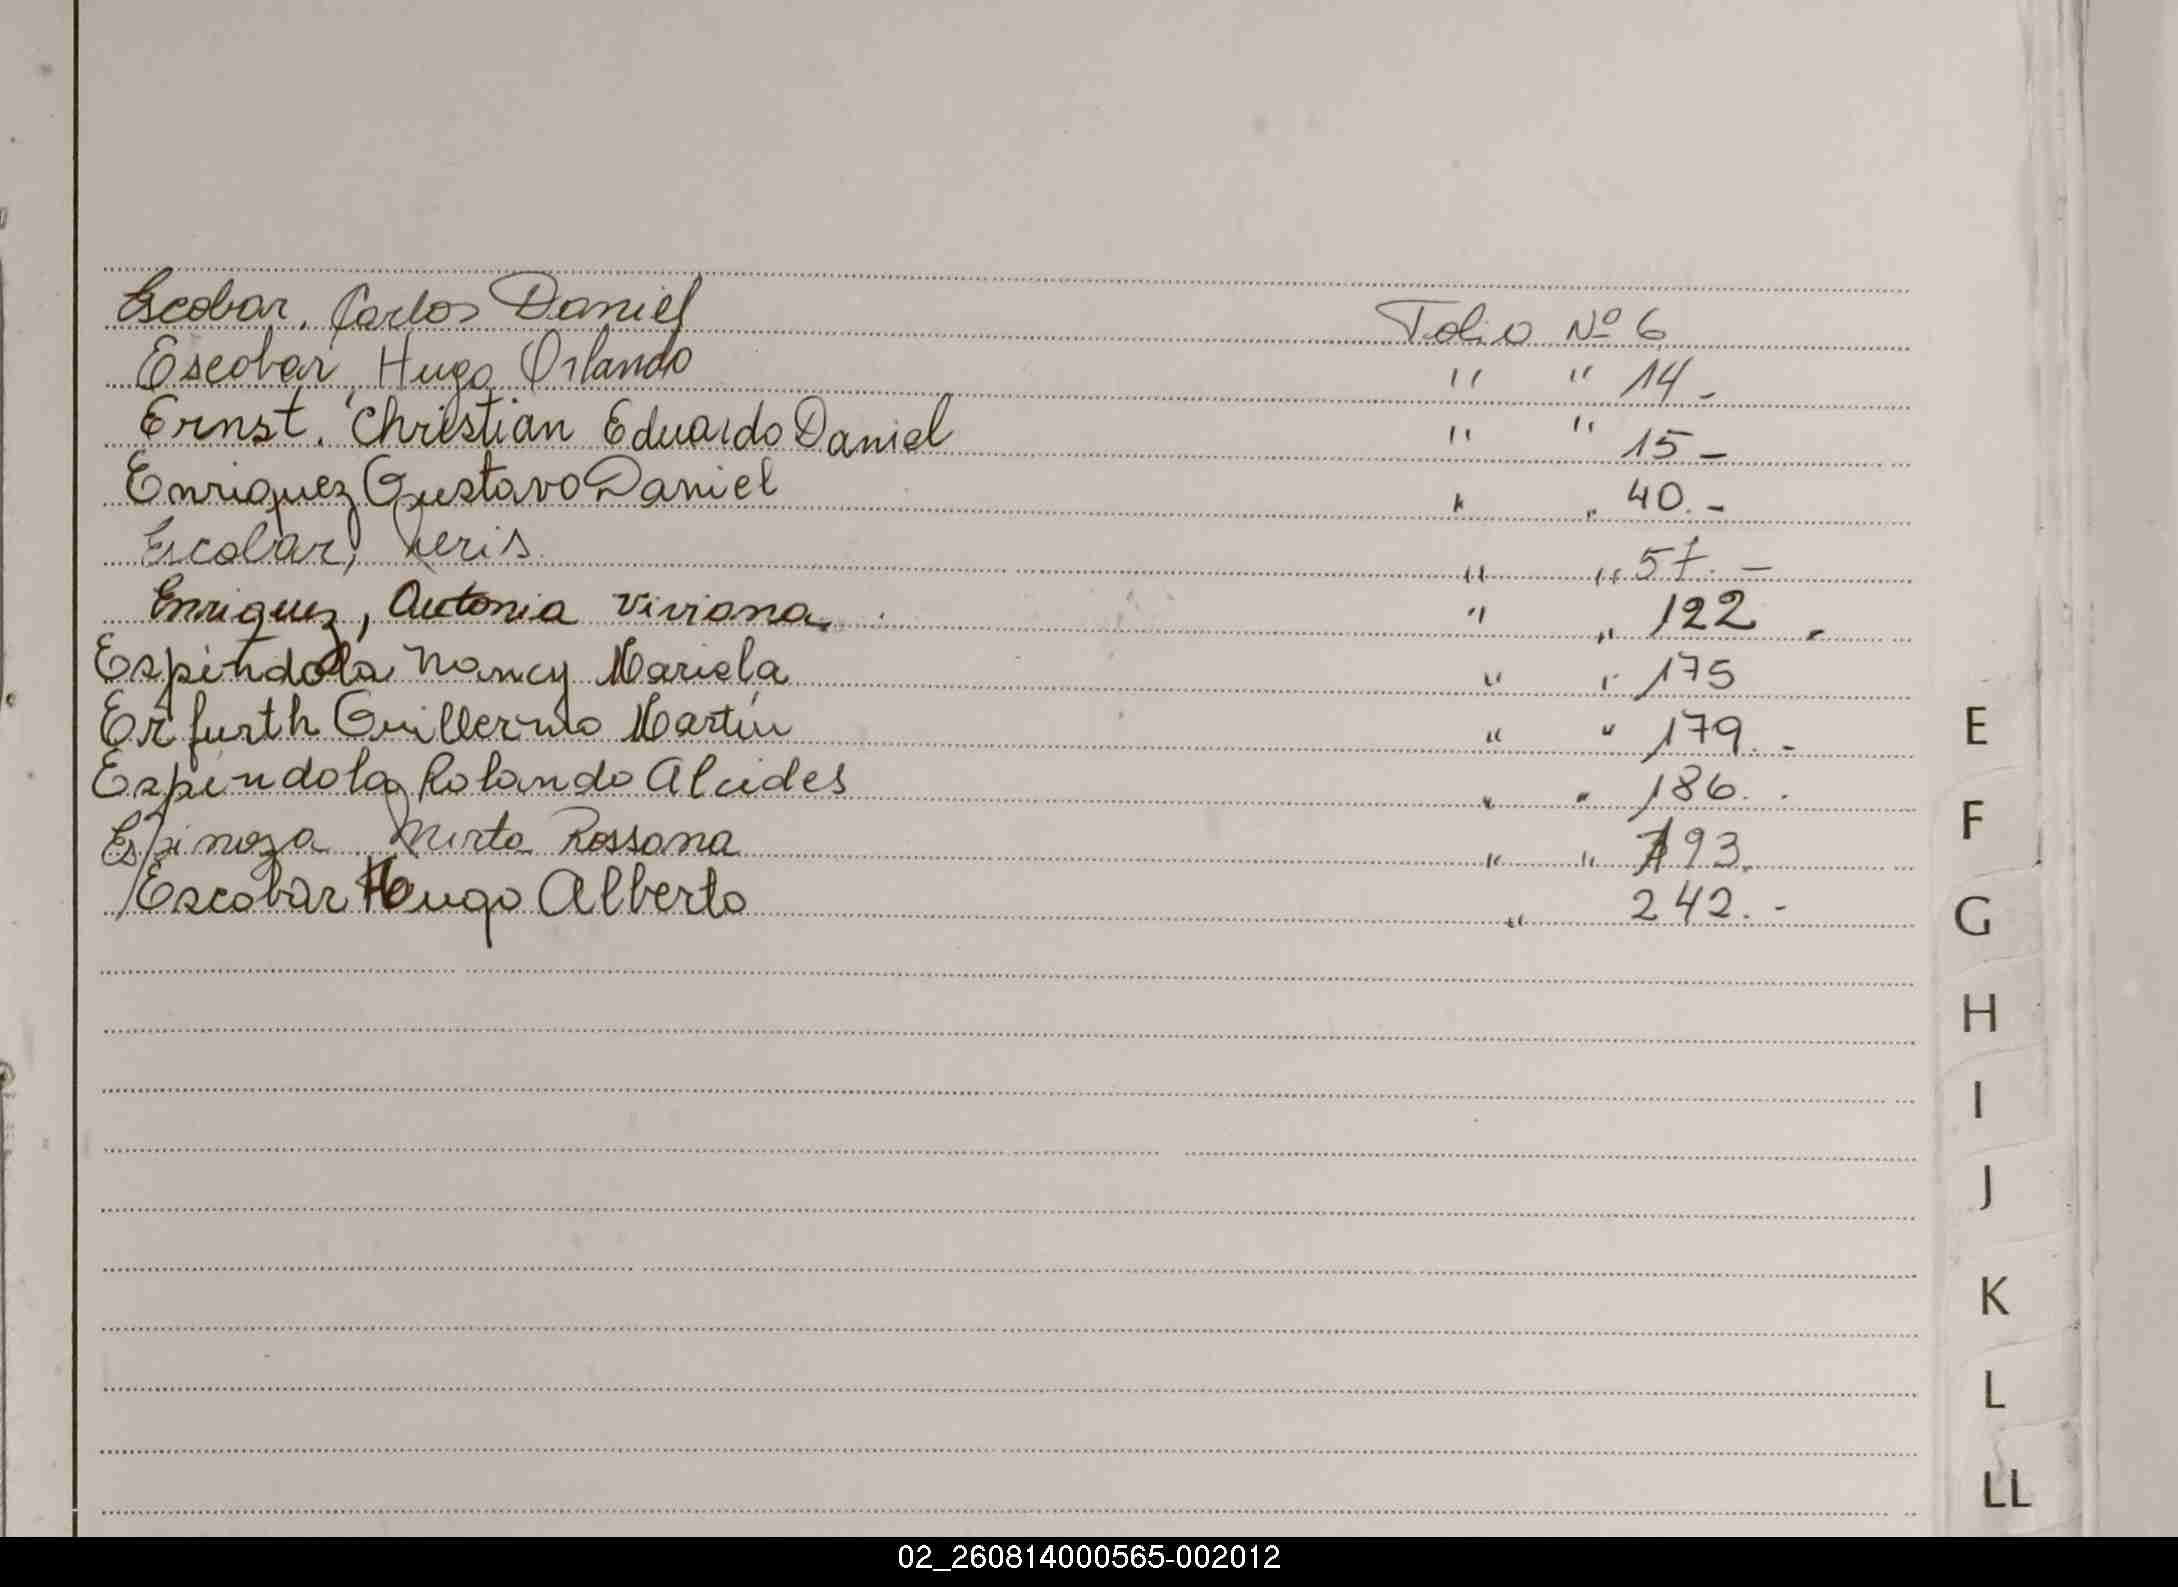 Escobar, Carlos Daniel Folio Nº 6
Escobar, Hugo Orlando " " 14 -
Ernst, Christian Eduardo Daniel " " 15 -
Enriquez Gustavo Daniel " " 40.-
Escobar, Neris " " 57. -
Enriquez, Antonia Viviana " " 122 .
Espindola Nancy Mariela " " 175
Erfurth Guillermo Martín " " 179.-
Espindola Rolando Alcides " " 186. .
Espinoza Mirta Rossana " " 193.
Escobar Hugo Alberto " 242.-
E
F
G
H
I
J
K
L
LL
02_260814000565-002012